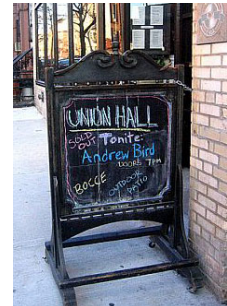 UNION HALL
SOLD OUT
Tonite:
Andrew Bird
DOORS 7PM
BOCCE
OUTDOOR
PATIO